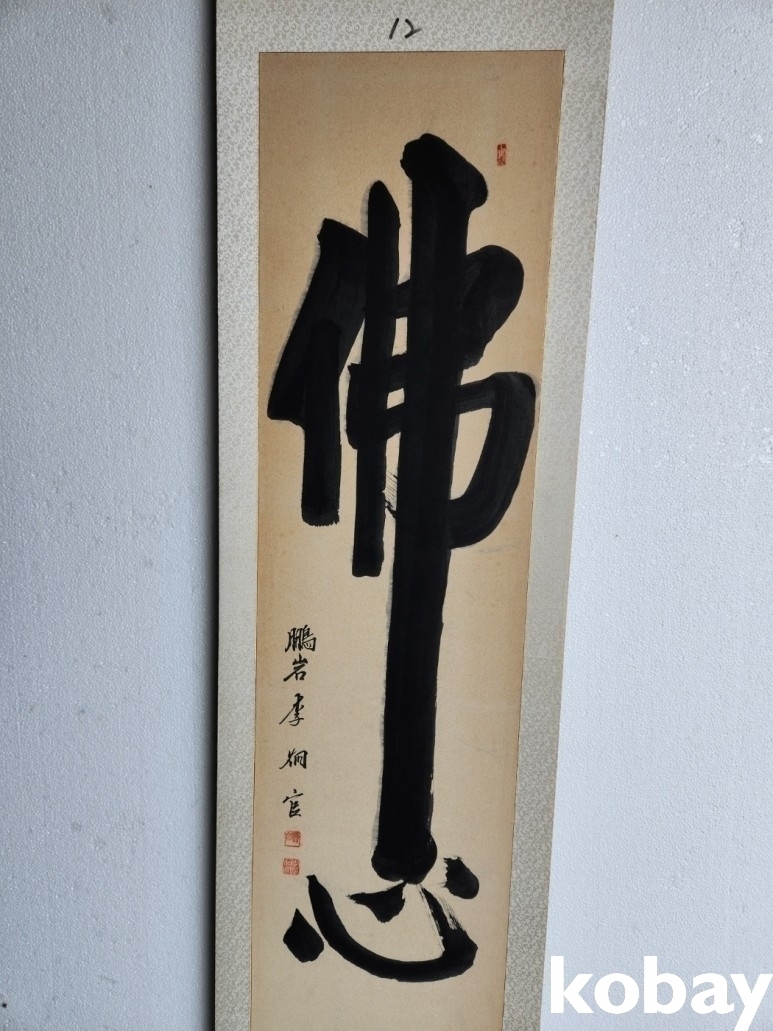 12
佛心
鵬岩 李炯官
kobay